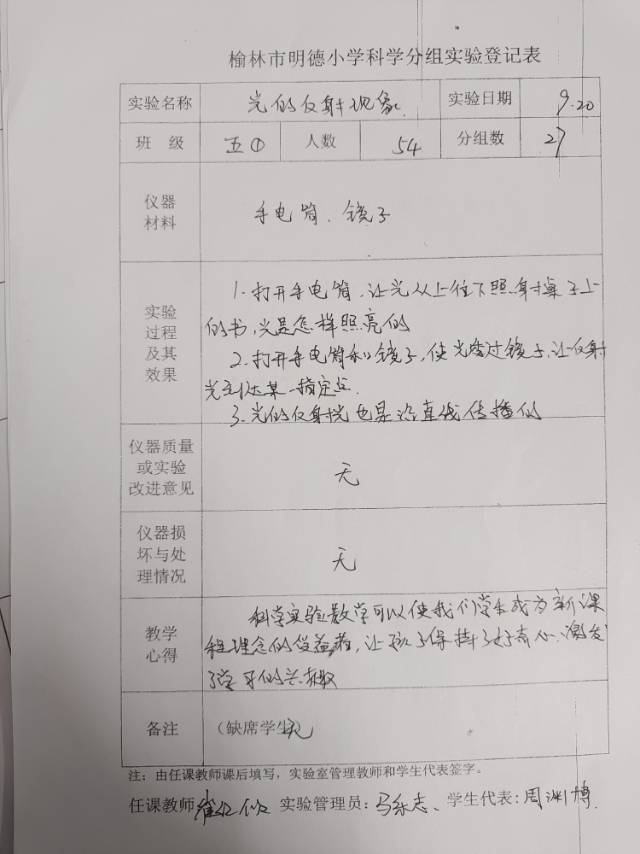 榆林市明德小学科学分组实验登记表
实验名称 光的反射现象 实验日期 9.20
班 级 五① 人数 54 分组数 27
仪器
材料
手电筒、镜子
实验
过程
及其
效果
1.打开手电筒,让光从上往下照射桌子上
的书,光是怎样照亮的
2.打开手电筒和镜子,使光透过镜子,让反射
光到达某一指定点.
3.光的反射光也是沿直线传播的
仪器质量
或实验
改进意见
无
仪器损
坏与处
理情况
无
教学
心得
科学实验教学可以使我们学生成为新课
程理念的受益者,让孩子保持了好奇心、激发
了学习的兴趣
备注 (缺席学生)无
注:由任课教师课后填写,实验室管理教师和学生代表签字。
任课教师 实验管理员:马永志、学生代表:周渊博